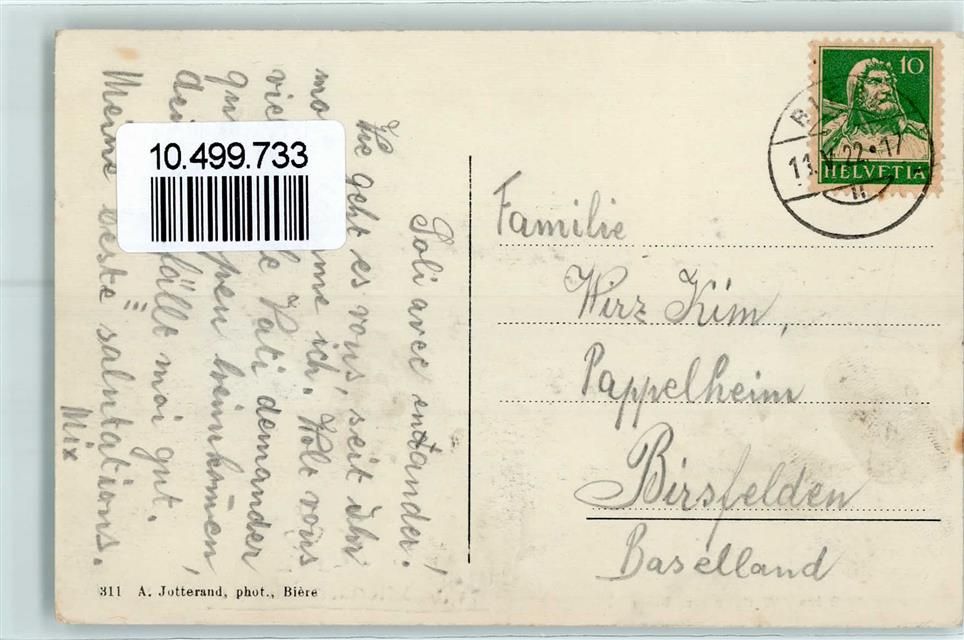 10.499.733
Soli avec entander!
Wie geht es vous, seit Ihr
ich. Holt vous
Kati demander
heimkommen,
fällt moi gut.
Meine beste salutations.
Mix
10
HELVETIA
22.17
Familie
Wirz Kim,
Pappelheim
Birsfelden
Baselland
311 A. Jotterand, phot., Bière